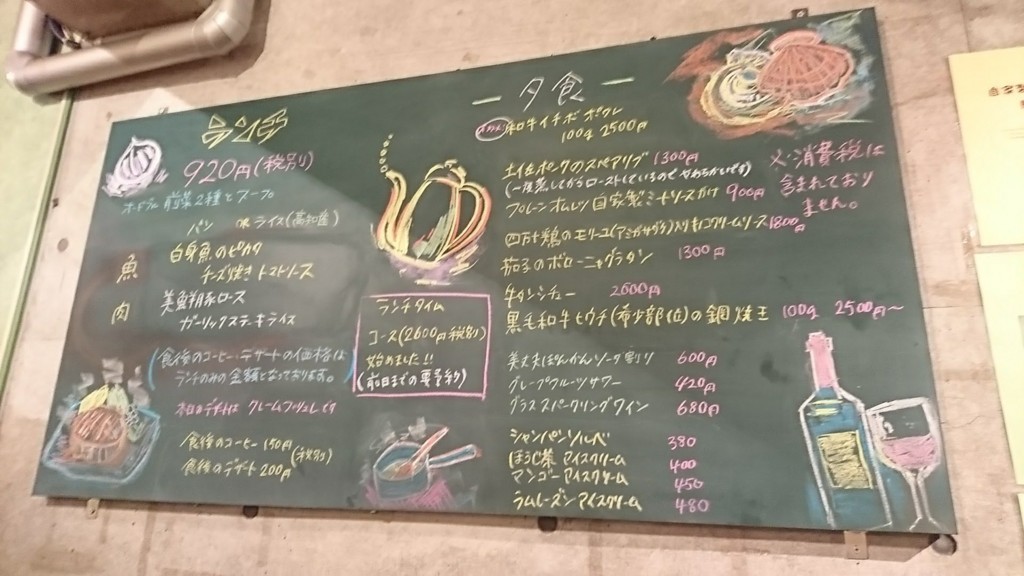 ランチ
920円(税別)
オードブル 前菜2種とスープ
パン or ライス(高知産)
魚 白身魚のピカタ
チーズ焼きトマトソース
肉 美鮮豚ロース
ガーリックステーキライス
(食後のコーヒー、デザートの価格は
ランチのみの金額となっております。)
本日のデザートは クレームブリュレです
食後のコーヒー 150円
食後のデザート 200円
(税別)
ランチタイム
コース(2600円税別)
始めました!!
(前日までの要予約)
— 夕食 —
和牛イチボ ポワレ
100g 2500円
土佐ポークのスペアリブ 1300円
(一度蒸してからローストしているのでやわらかいです)
プレーンオムレツ 自家製ミートソースがけ 900円
四万十鶏のモリーユ(アミガサダケ)入りきのこクリームソース 1800円
茄子のボローニャグラタン 1300円
牛タンシチュー 2600円
黒毛和牛ヒウチ(希少部位)の鋼焼き 100g 2500円〜
ぽんかんソーダ割り 600円
グレープフルーツサワー 420円
グラススパークリングワイン 680円
シャンパンソルベ 380
ほうじ茶アイスクリーム 400
マンゴーアイスクリーム 450
ラムレーズンアイスクリーム 480
※消費税は
含まれており
ません。